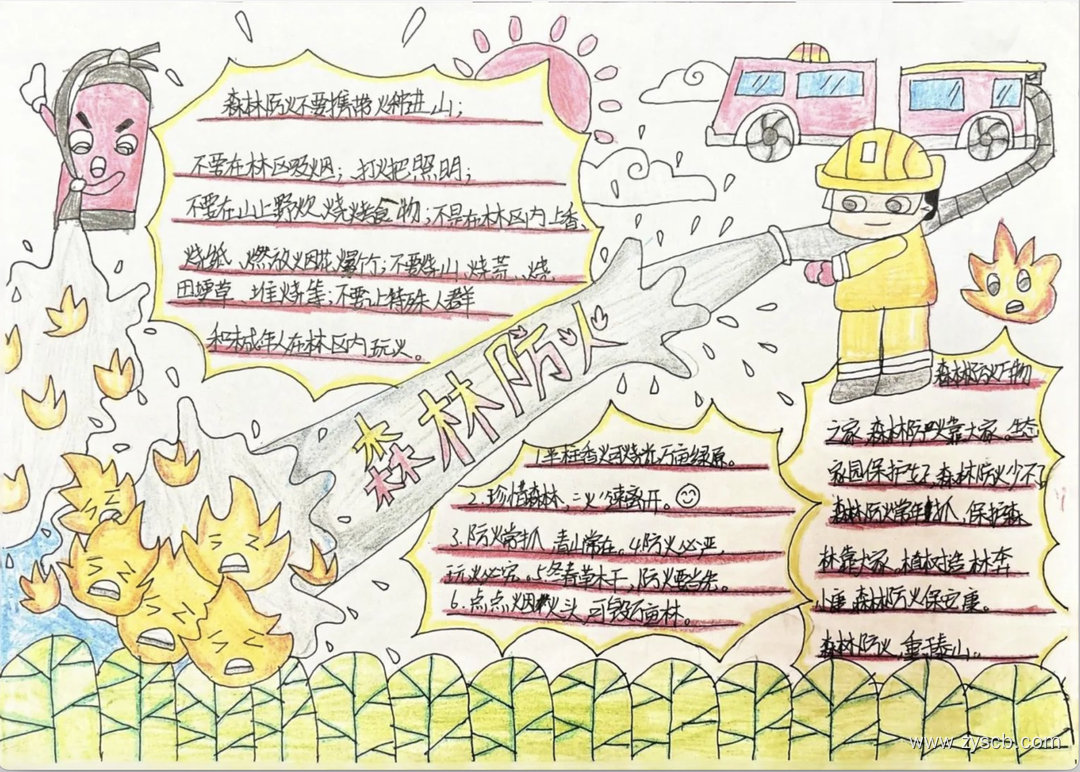 森林防火不要携带火种进山;
不要在林区吸烟;打火把照明;
不要在山上野炊、烧烤食物;不是在林区内上香、
烧纸、燃放烟花爆竹;不要烧山、烧荒、烧
田埂草、堆烧等;不要让特殊人群
和成年人在林区内玩火。
森林防火
1.半柱香火可烧光万亩绿原。
2.珍惜森林,火速离开。
3.防火常抓,青山常在。4.防火必严,
玩火必究。5.冬春草木干,防火要当先。
6.点点烟火头,可毁万亩林。
森林防火万物
之家,森林防火靠大家。生态
家园保护好了,森林防火少不了
森林防火常年抓,保护森
林靠大家,植树造林奔
小康,森林防火保安康。
森林防火,重于泰山。
www.zyscb.com